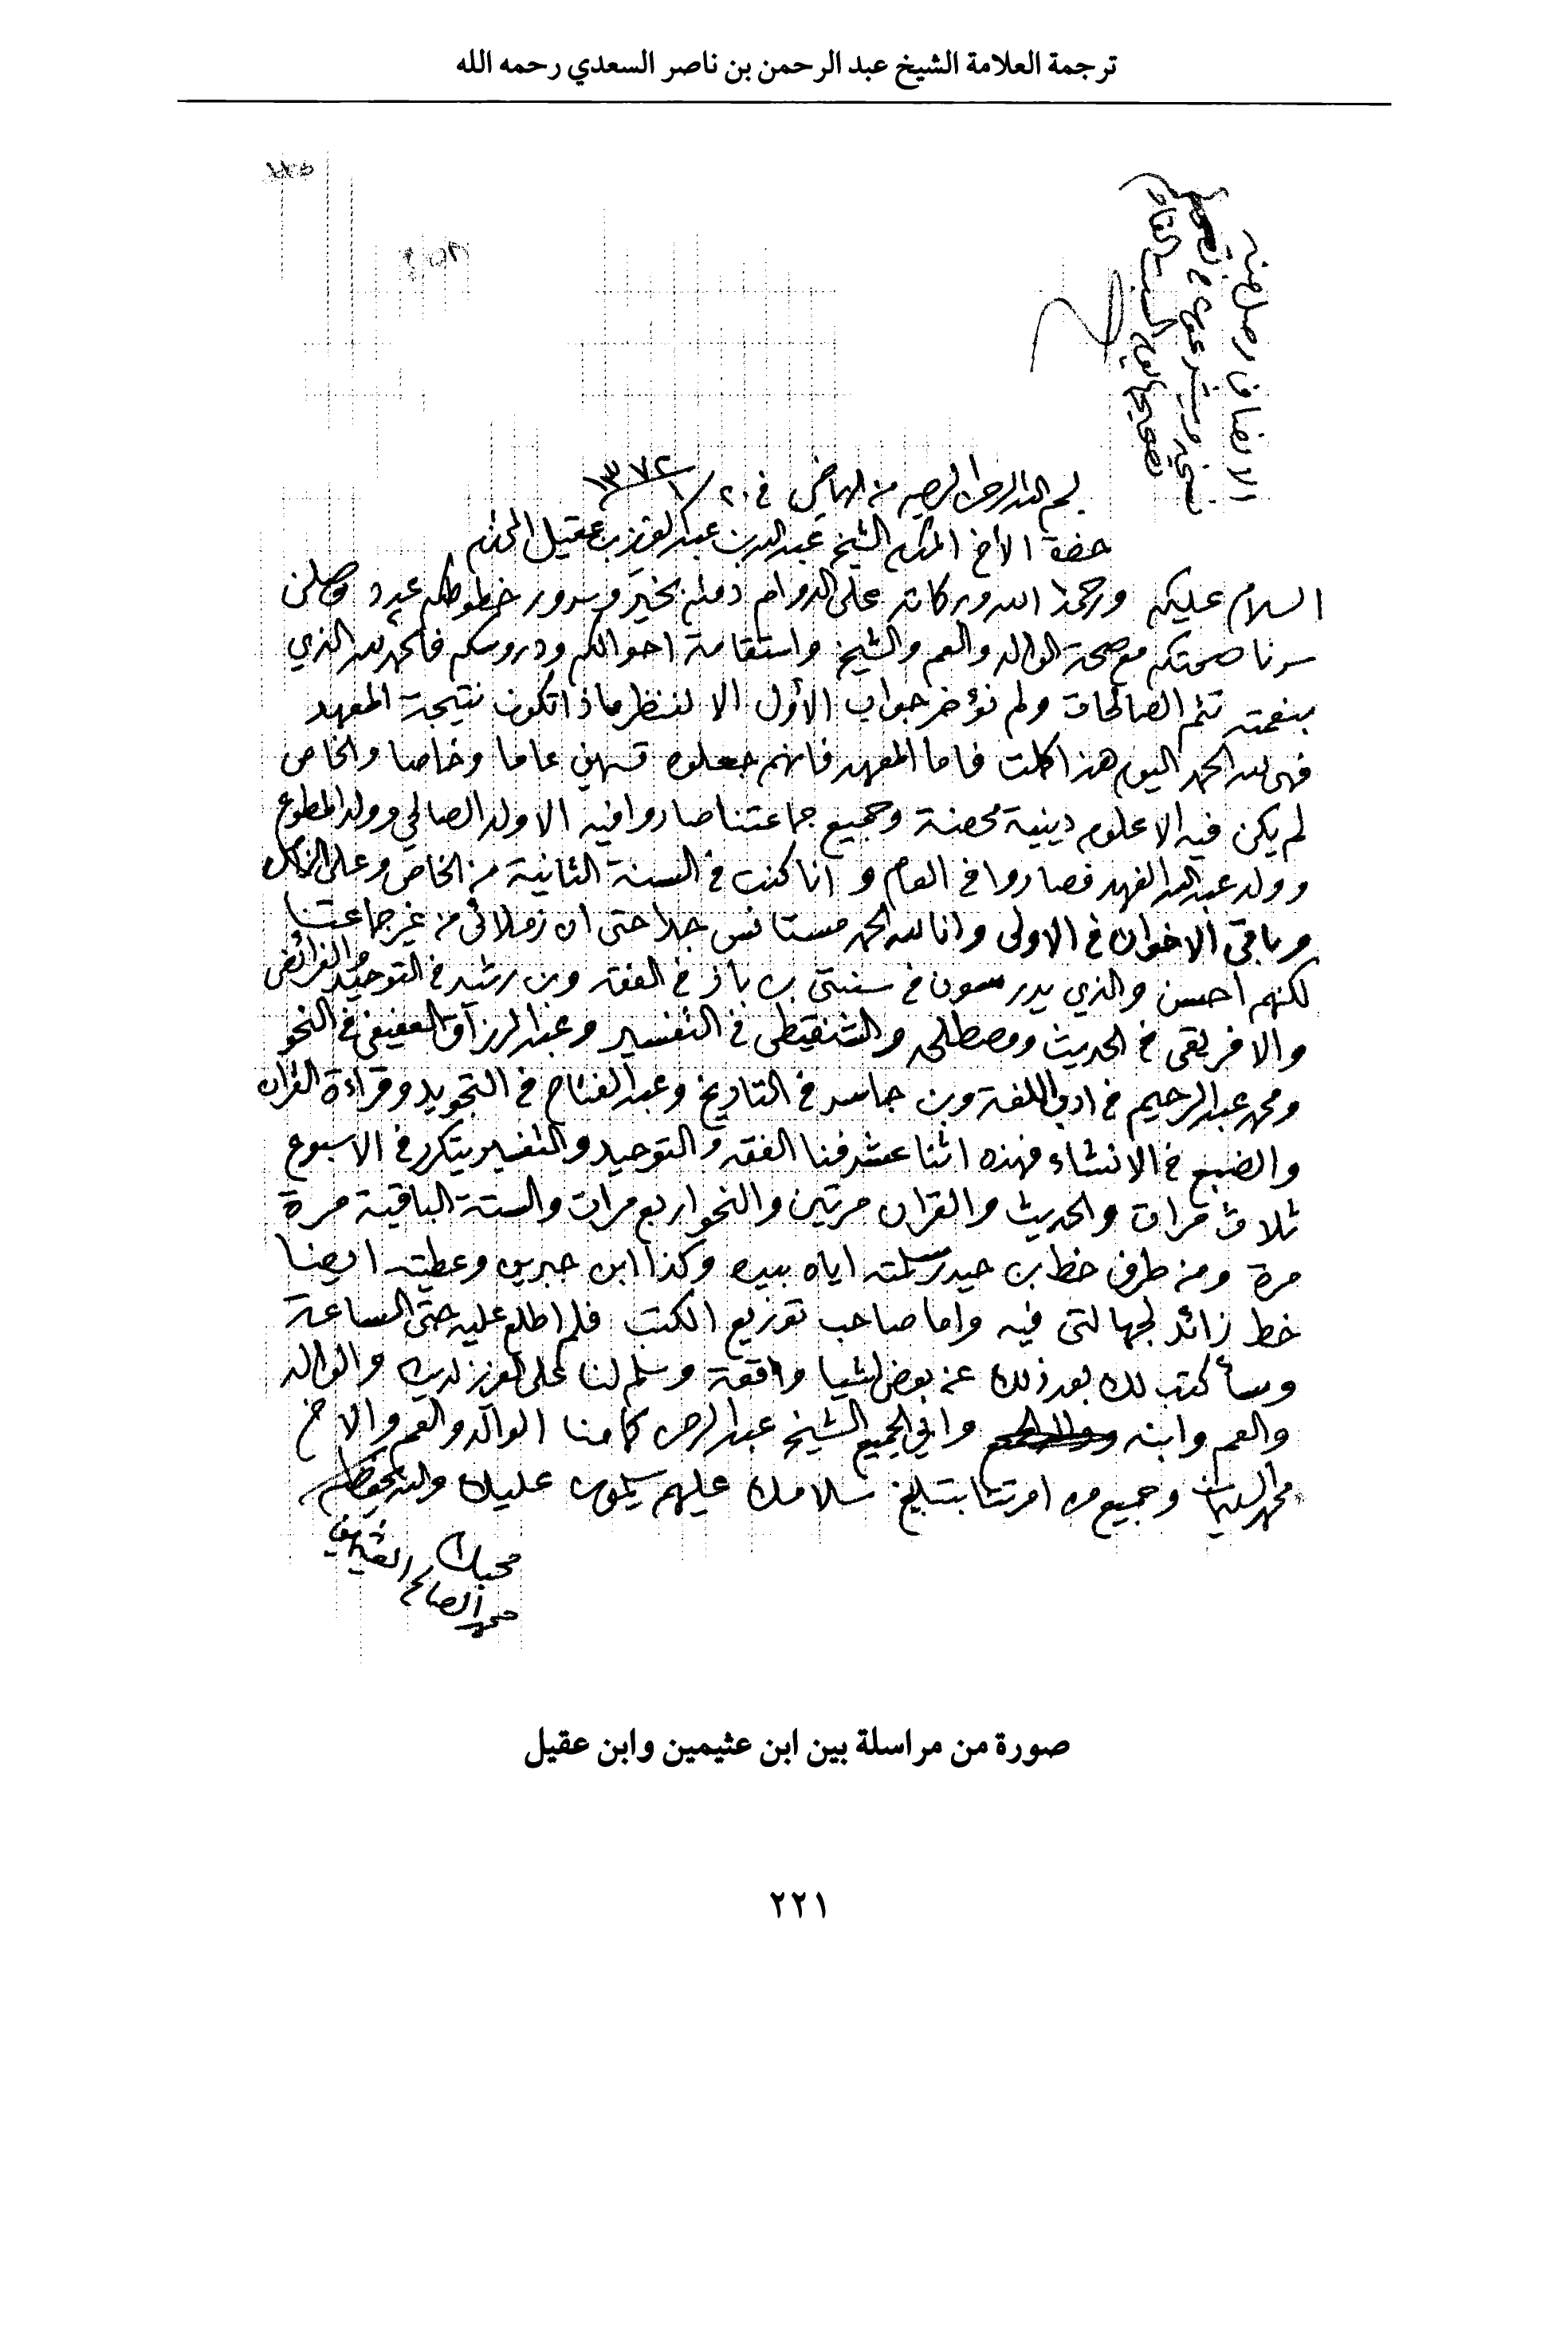 ترجمة العلامة الشيخ عبد الرحمن بن ناصر السعدي رحمه الله
الانصاف وصل منه
بسم الله الرحمن الرحيم من الرياض في ٢٠/١/١٣٧٢
حضرة الأخ المكرم الشيخ عبد الله بن عبد العزيز بن عقيل المحترم
السلام عليكم ورحمة الله وبركاته على الدوام دمتم بخير وسرور خطوطكم عدد وصلن
سرنا صحتكم مع صحة الوالد والعم والشيخ واستقامة احوالكم ودروسكم فالحمد لله الذي
بنعمته تتم الصالحات ولم نؤخر جواب الأول الا لننظر ماذا تكون نتيجة المعهد
فهي لله الحمد اليوم هذا كملت فاما المعهد فانهم جعلوه قسمين عاما وخاصا والخاص
لم يكن فيه الا علوم دينية محضة وجميع جماعتنا صاروا فيه الا ولد الصالحي وولد المطوع
وولد عبد الله الفهد فصاروا في العام و انا كنت في السنة الثانية من الخاص وعلي الزامل
وباقي الاخوان في الاولى وانا لله الحمد مستانس جدا حتى ان زملائي من غير جماعتنا
لكنهم احسن والذي يدرسون في سنتي بن باز في الفقه وبن رشيد في التوحيد والفرائض
والافريقي في الحديث ومصطلحه والشنقيطي في التفسير وعبد الرزاق العفيفي في النحو
ومحمد عبد الرحيم في ادب اللغة وبن جاسر في التاريخ وعبد الفتاح في التجويد وقراءة القران
والضبع في الانشاء فهذه اثنا عشر فنا الفقه والتوحيد والتفسير يتكرر في الاسبوع
ثلاث مرات والحديث والقران مرتين والنحو اربع مرات والستة الباقية مرة
مرة ومن طرف خط بن حيدر سلمته اياه بيده وكذا ابن جبرين وعطيته ايضا
خط زائد لجهالتي فيه واما صاحب توزيع الكتب فلم اطلع عليه حتى الساعة
وسأكتب لك بعد ذلك عن بعض اشيا واقعة وسلم لنا على العزيز لديك والوالد
والعم وابنه وافي الجميع الشيخ عبد الرحمن كما منا الوالد والعم والاخ
محمد السليمان وجميع من امرتنا بتبليغ سلامك عليهم يسلمون عليك والله يحفظكم
محبك
محمد الصالح العثيمين
صورة من مراسلة بين ابن عثيمين وابن عقيل
٢٢١